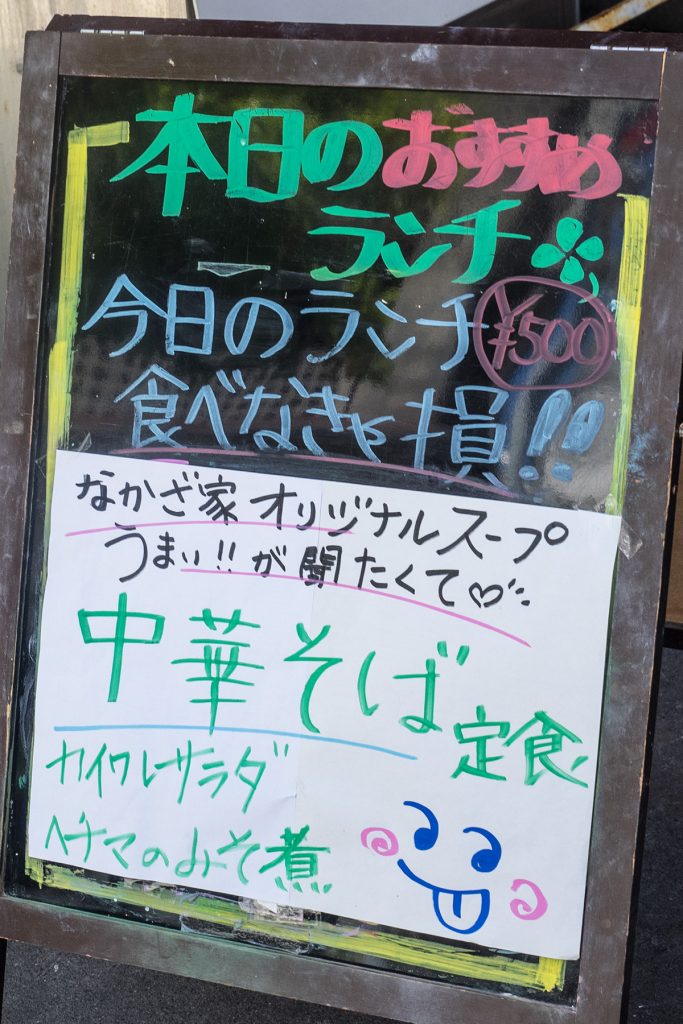 本日のおすすめ
ランチ
今日のランチ ¥500
食べなきゃ損!!
なかざ家オリジナルスープ
うまい!!が聞たくて♡
中華そば定食
カイワレサラダ
ヘチマのみそ煮